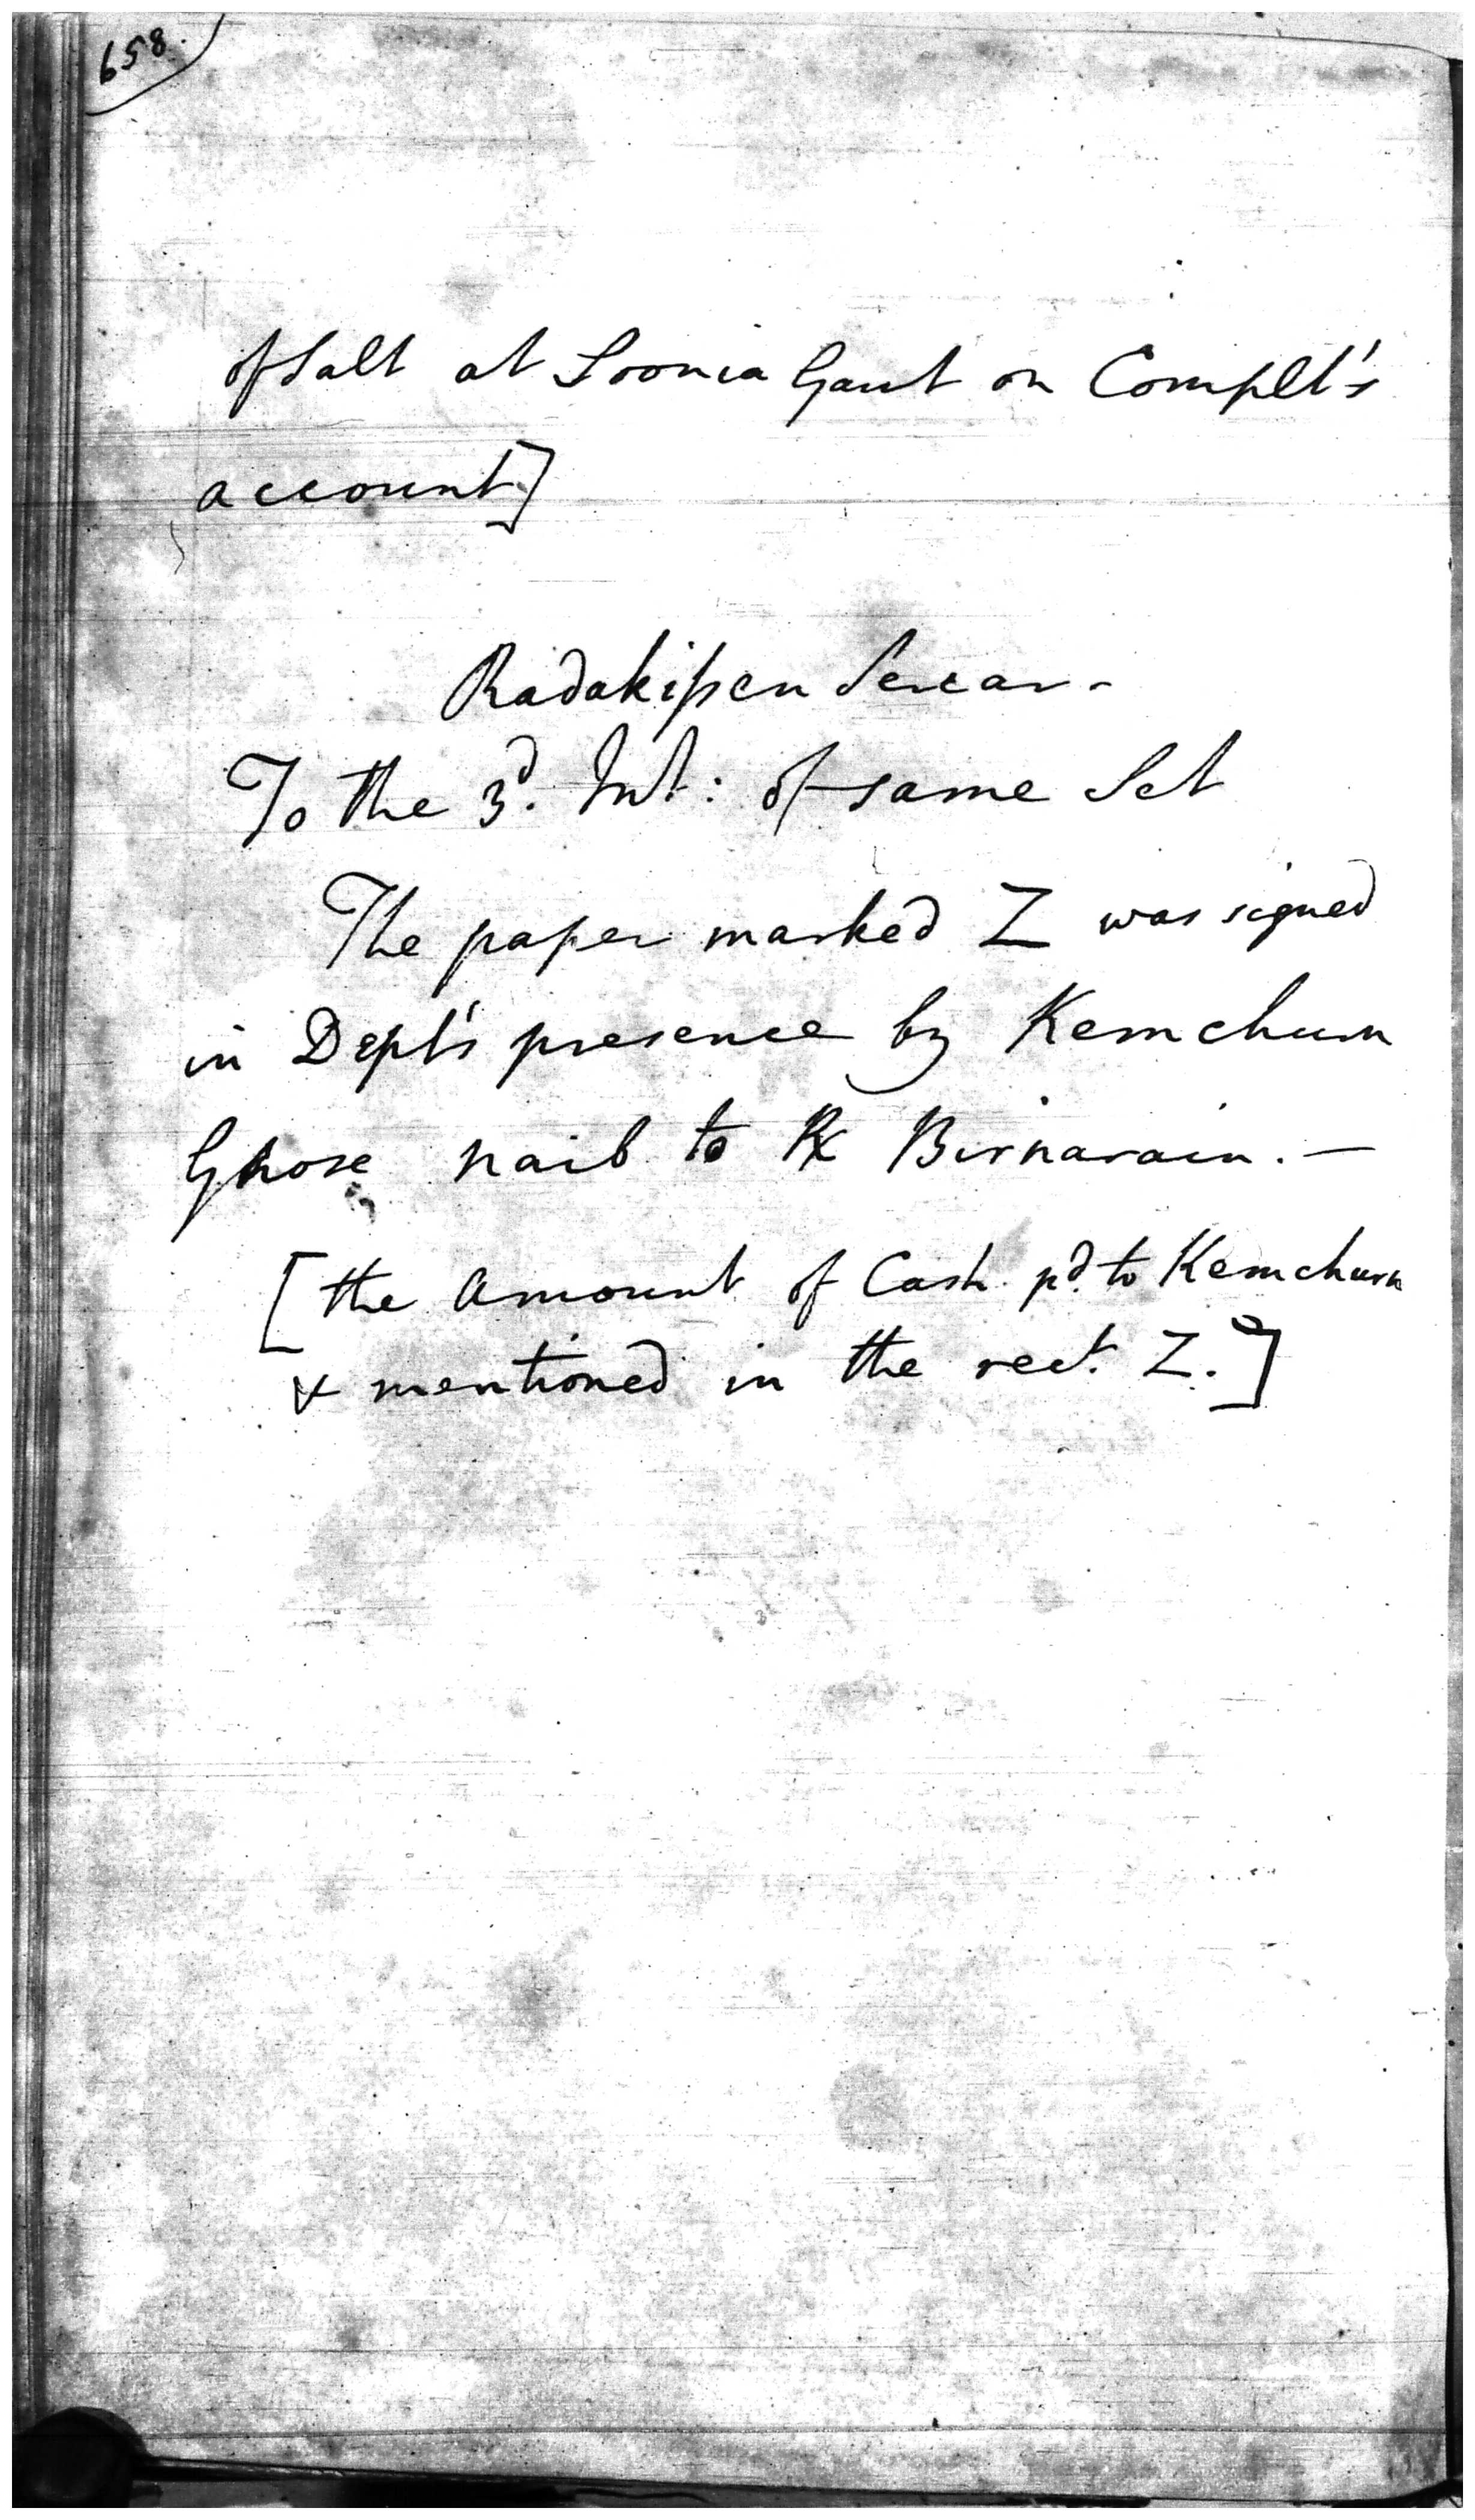 658.
of Salt at Soonia Gaut on Complt's
account]
Radakissen Sercar -
To the 3d. Int: of same Set
The paper marked Z was signed
in Depts presence by Kemchurn
Ghose naib to Birnarain. —
[the Amount of Cash pd. to Kemchurn
& mentioned in the rect. Z.]